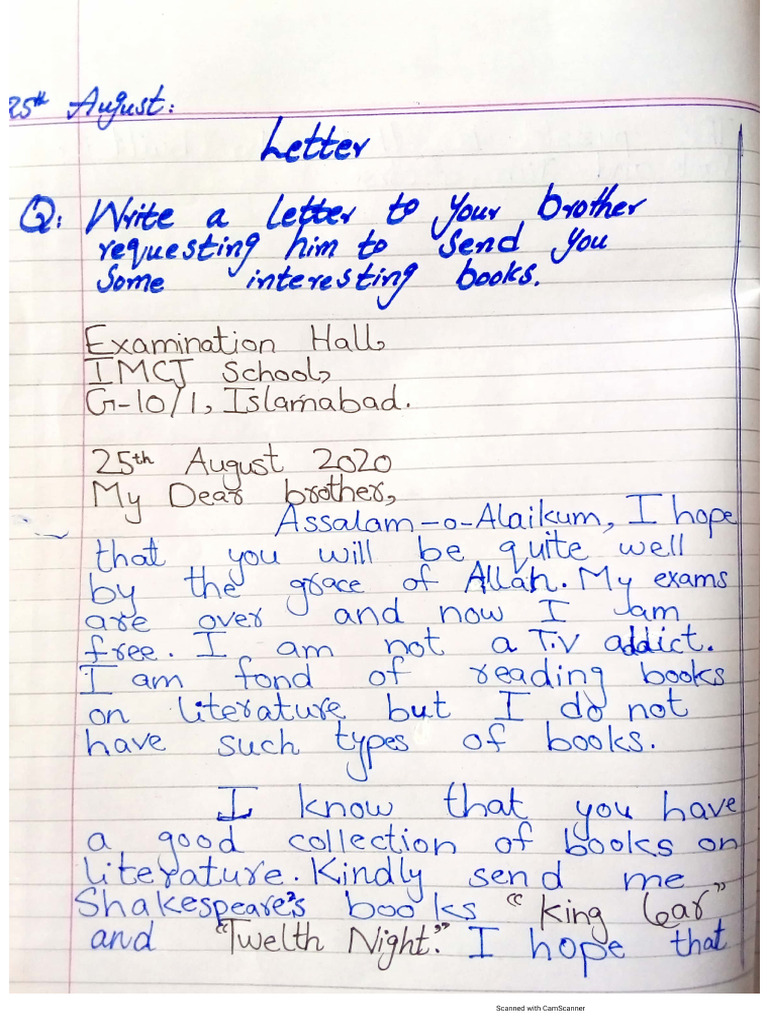 25th August:
Letter
Q: Write a letter to your brother
requesting him to send you
some interesting books.
Examination Hall,
IMCJ School,
G-10/1, Islamabad.
25th August 2020
My Dear brother,
Assalam-o-Alaikum, I hope
that you will be quite well
by the grace of Allah. My exams
are over and now I am
free. I am not a T.V addict.
I am fond of reading books
on literature but I do not
have such types of books.
I know that you have
a good collection of books on
literature. Kindly send me
Shakespeare's books "King Lear"
and "Twelth Night." I hope that
Scanned with CamScanner